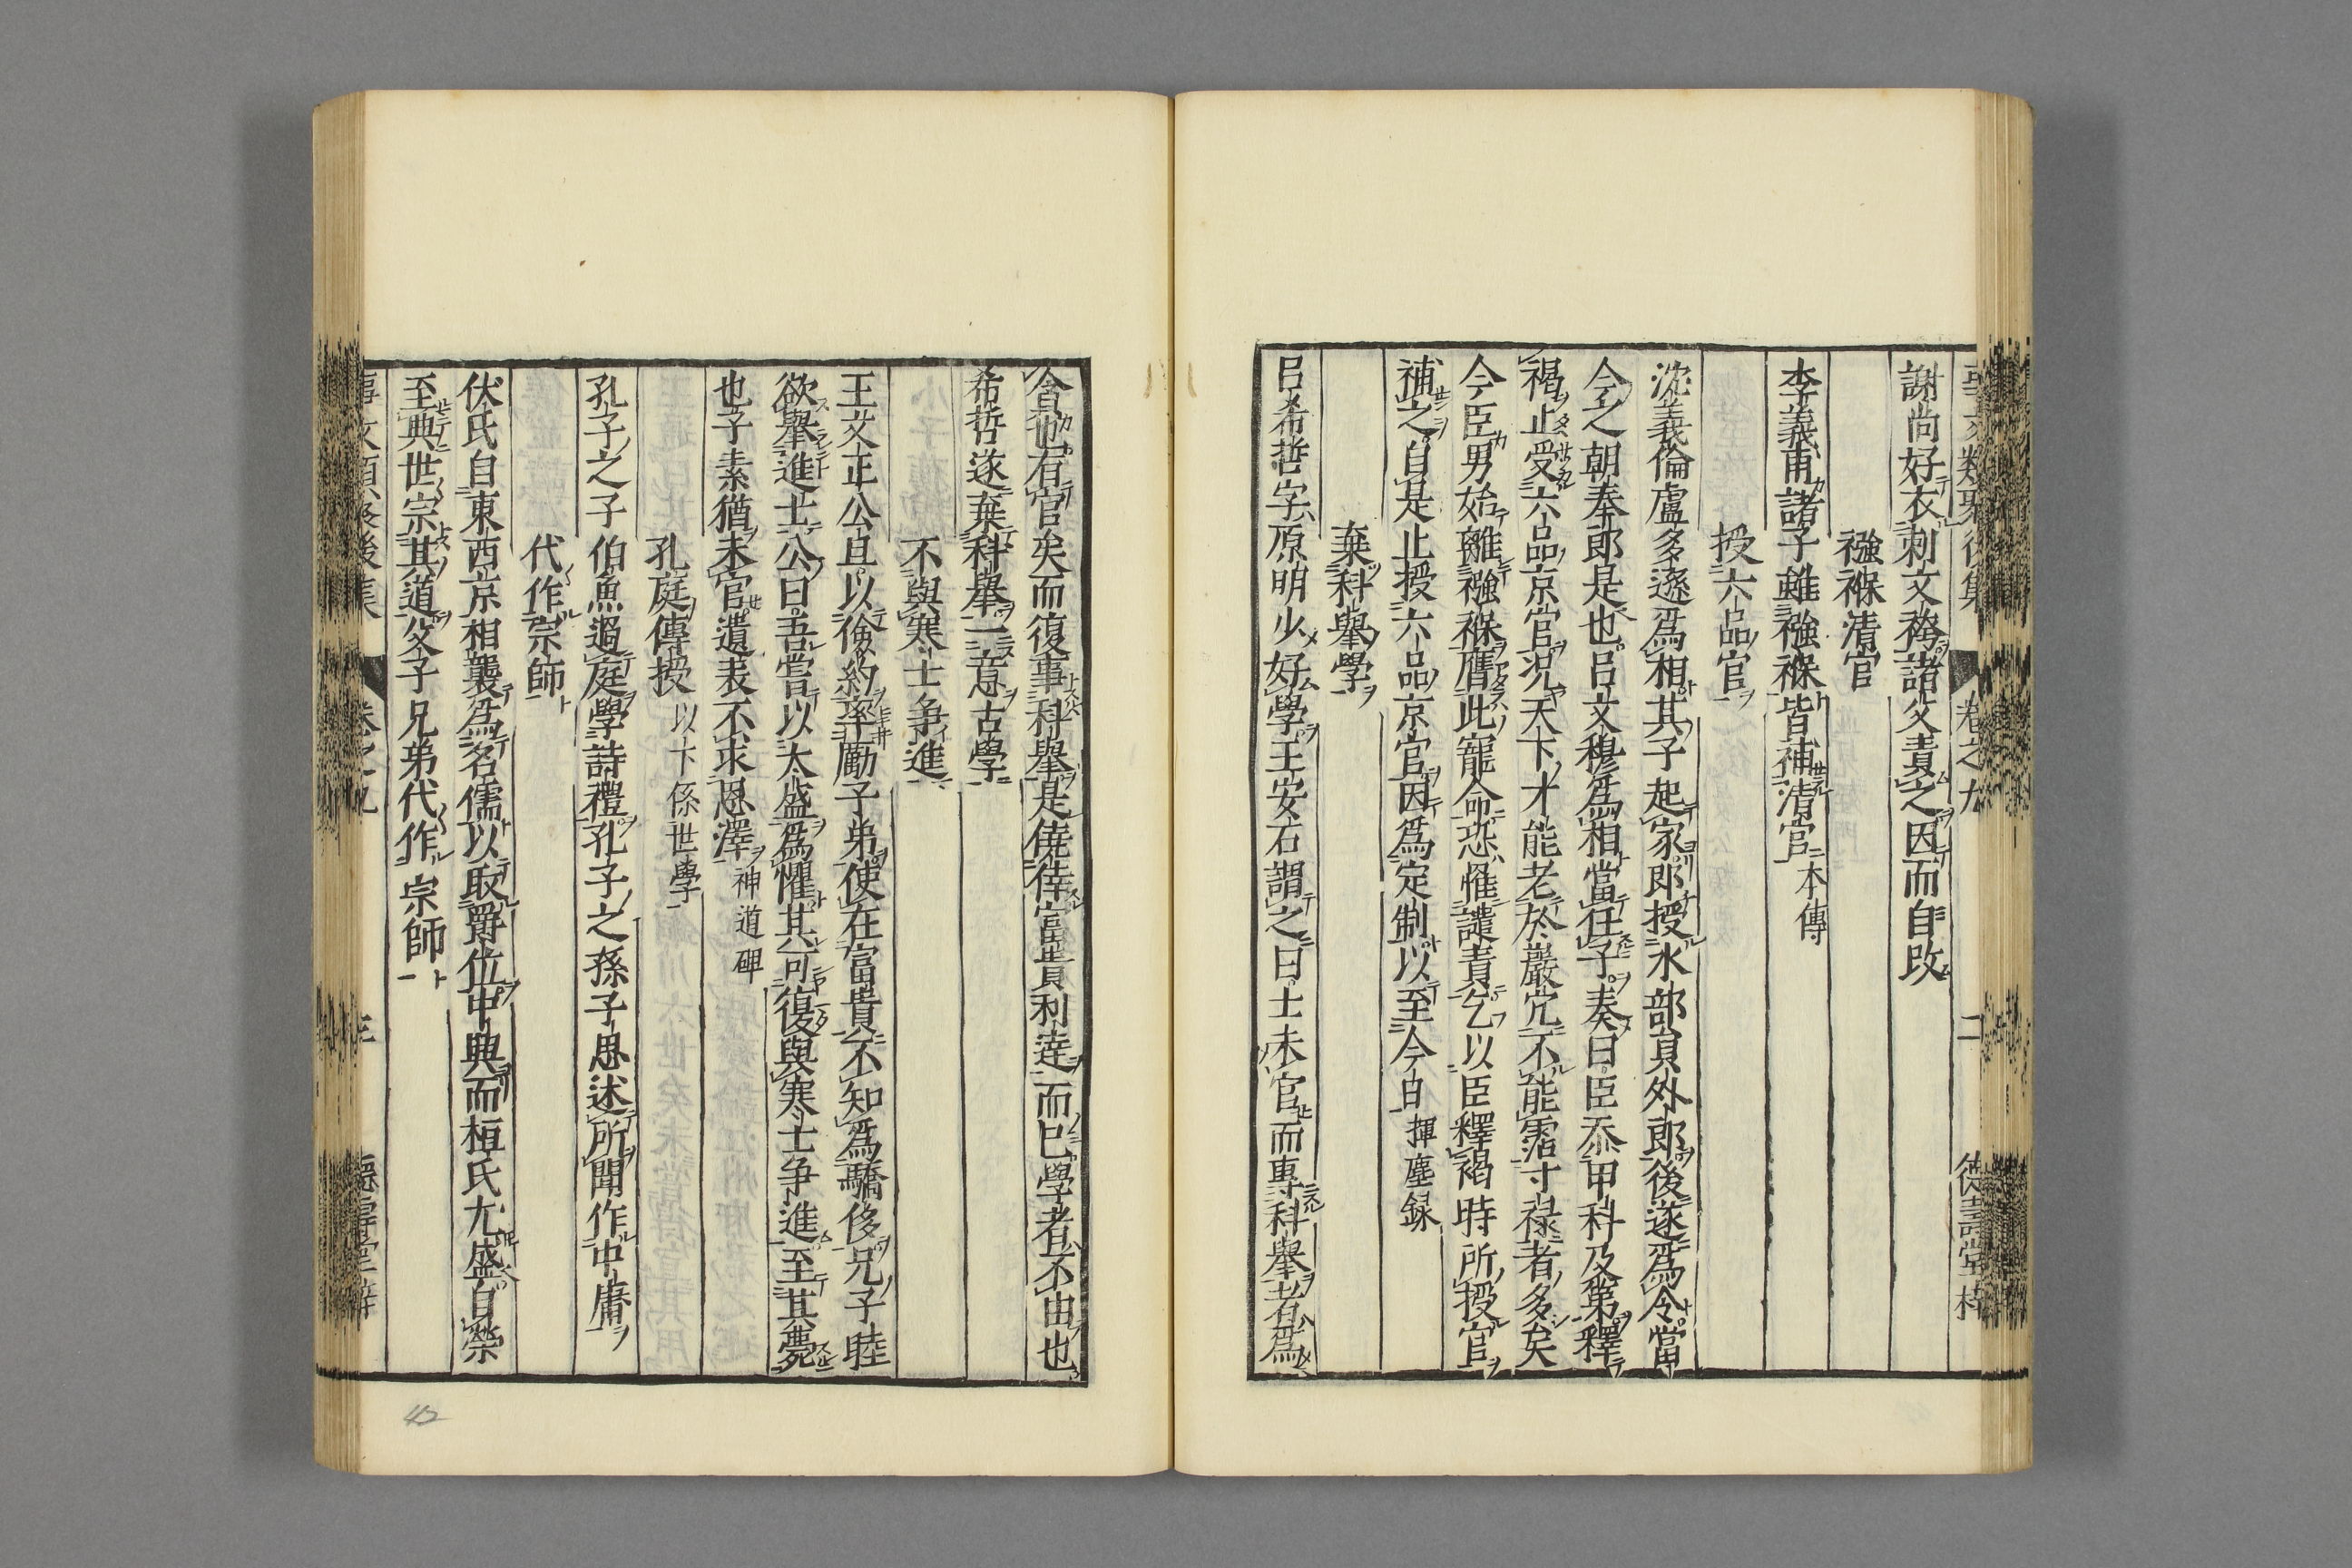 謝尚好衣刺文袴諸父責之因而自改
襁褓清官
李義甫諸子雖襁褓皆補清官本傳
授六品官
沈義倫盧多遜爲相其子起家郎授水部員外郎後遂爲令當
今之朝奉郎是也呂文穆爲相當任子奏曰臣忝甲科及第釋
褐止受六品京官况天下才能老於巖穴不能霑寸祿者多矣
今臣男始離襁褓膺此寵命恐惟譴責乞以臣釋褐時所授官
補之自是止授六品京官因爲定制以至今日揮塵録
棄科擧學
呂希哲字原明少好學王安石謂之曰士未官而專科擧者爲
貪也有官矣而復事科擧是僥倖富貴利達而已學者不由也
希哲遂棄科擧一意古學
不與寒士争進
王文正公旦以儉約率勵子弟使在富貴不知爲驕侈兄子睦
欲擧進士公曰吾嘗以大盛爲懼其可復與寒士争進至其薨
也子素猶未官遺表不求恩澤神道碑
孔庭傳授以下係世學
孔子之子伯魚過庭學詩禮孔子之孫子思述所聞作中庸
代作宗師
伏氏自東西京相襲爲名儒以取爵位中興而桓氏尤盛自榮
至典世宗其道父子兄弟代作宗師